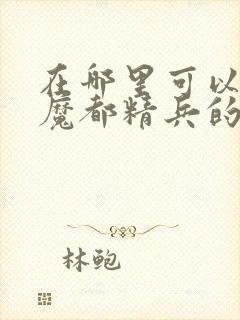 在哪里可以
魔都精兵的
林鲍